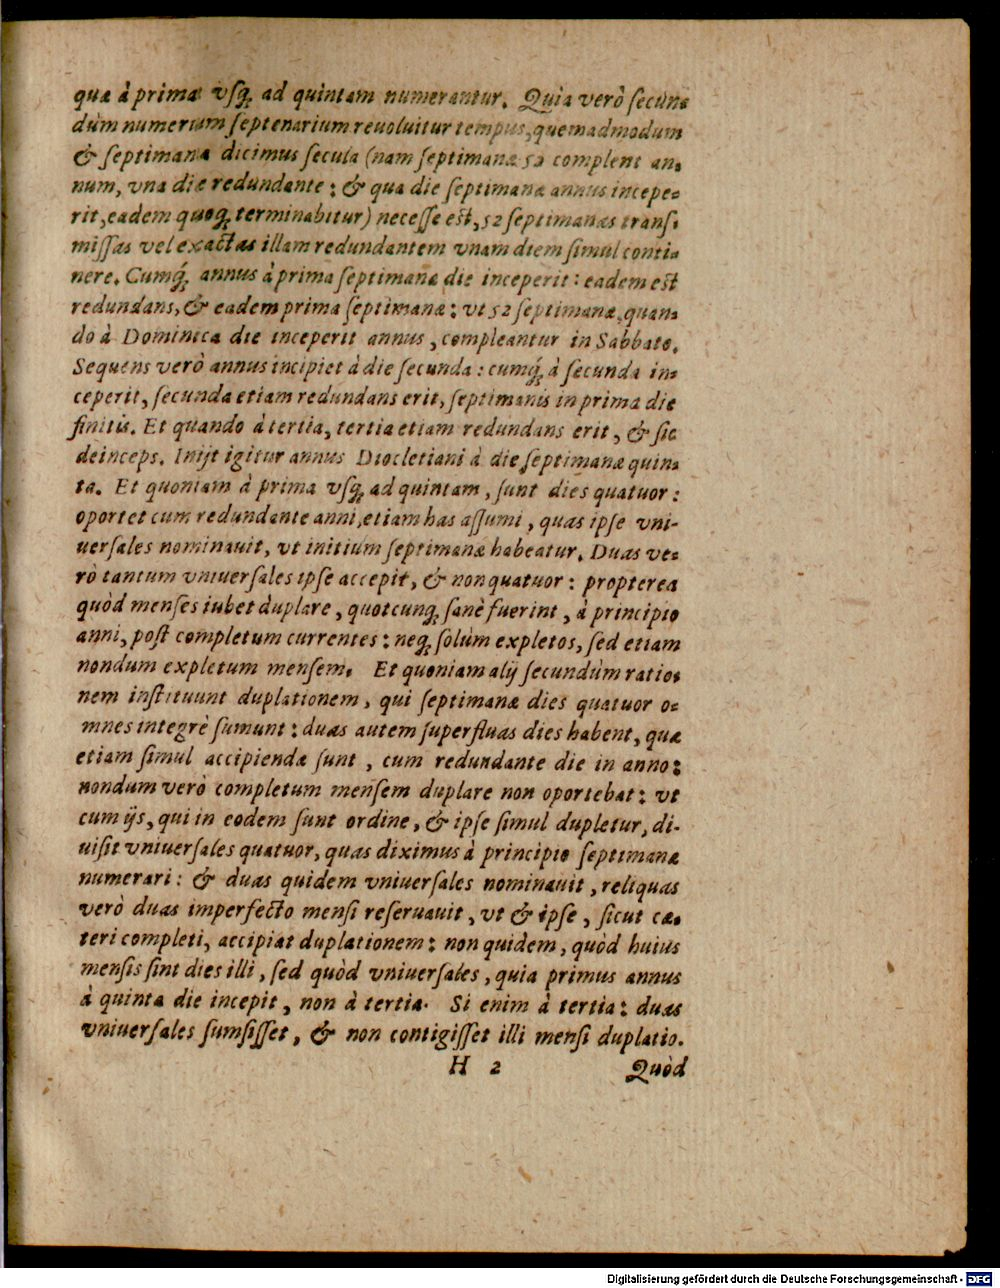 quæ à prima vſq; ad quintam numerantur. Quia verò ſecun⸗
dùm numerum ſeptenarium reuoluitur tempus, quemadmodum
& ſeptimana dicimus ſecula (nam ſeptimanæ 52 complent an⸗
num, vna die redundante: & qua die ſeptimanæ annus incepe⸗
rit, eadem quoq; terminabitur) neceſſe eſt, 52 ſeptimanas tranſ⸗
miſſas vel exactas illam redundantem vnam diem ſimul conti⸗
nere. Cumq́; annus à prima ſeptimanæ die inceperit: eadem eſt
redundans, & eadem prima ſeptimanæ: vt 52 ſeptimanæ, quan⸗
do à Dominica die inceperit annus, compleantur in Sabbato.
Sequens verò annus incipiet à die ſecunda: cumq́; à ſecunda in⸗
ceperit, ſecunda etiam redundans erit, ſeptimanis in prima die
finitis. Et quando à tertia, tertia etiam redundans erit, & ſic
deinceps. Inijt igitur annus Diocletiani à die ſeptimanæ quin⸗
ta. Et quoniam à prima vſq; ad quintam, ſunt dies quatuor:
oportet cum redundante anni, etiam has aſſumi, quas ipſe vni-
uerſales nominauit, vt initium ſeptimanæ habeatur. Duas ve⸗
rò tantum vniuerſales ipſe accepit, & non quatuor: propterea
quòd menſes iubet duplare, quotcunq; ſanè fuerint, à principio
anni, poſt completum currentes: neq; ſolùm expletos, ſed etiam
nondum expletum menſem. Et quoniam alij ſecundùm ratio⸗
nem inſtituunt duplationem, qui ſeptimanæ dies quatuor o⸗
mnes integrè ſumunt: duas autem ſuperfluas dies habent, quæ
etiam ſimul accipiendæ ſunt, cum redundante die in anno:
nondum verò completum menſem duplare non oportebat: vt
cum ijs, qui in eodem ſunt ordine, & ipſe ſimul dupletur, di-
uiſit vniuerſales quatuor, quas diximus à principio ſeptimanæ
numerari: & duas quidem vniuerſales nominauit, reliquas
verò duas imperfecto menſi reſeruauit, vt & ipſe, ſicut cæ⸗
teri completi, accipiat duplationem: non quidem, quòd huius
menſis ſint dies illi, ſed quòd vniuerſales, quia primus annus
à quinta die incepit, non à tertia. Si enim à tertia: duas
vniuerſales ſumſiſſet, & non contigiſſet illi menſi duplatio.
H 2 Quòd
Digitalisierung gefördert durch die Deutsche Forschungsgemeinschaft - DFG